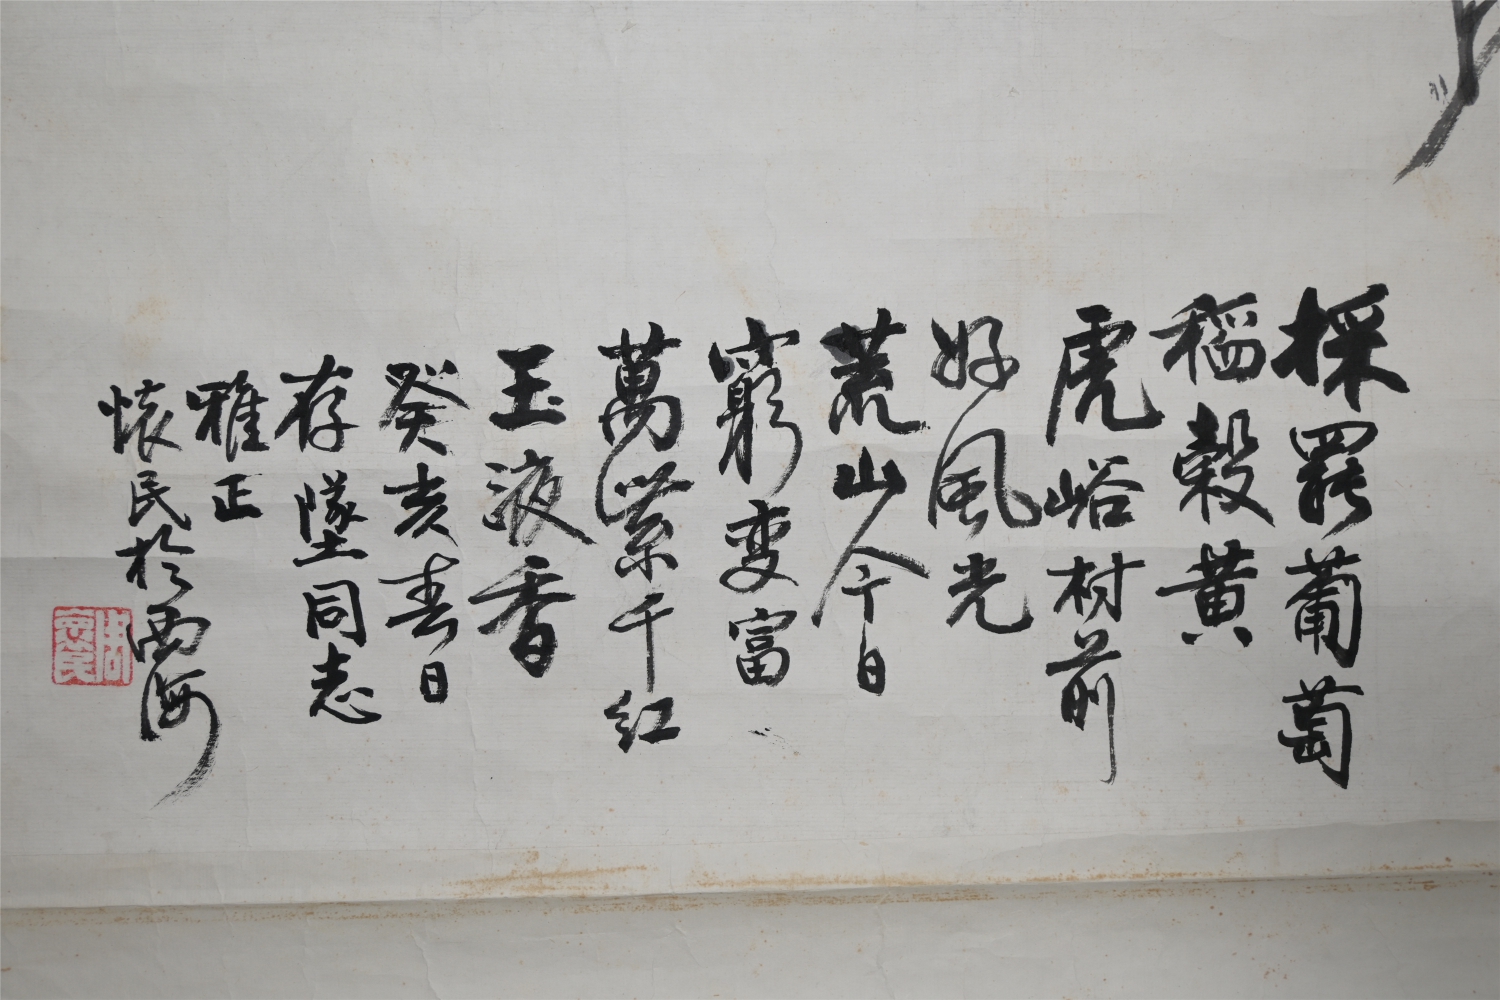 採罷葡萄
稻穀黄
虎峪村前
好風光
荒山今日
窮变富
萬紫千红
玉液香
癸亥春日
存墜同志
雅正
懷民於西海
周懷民